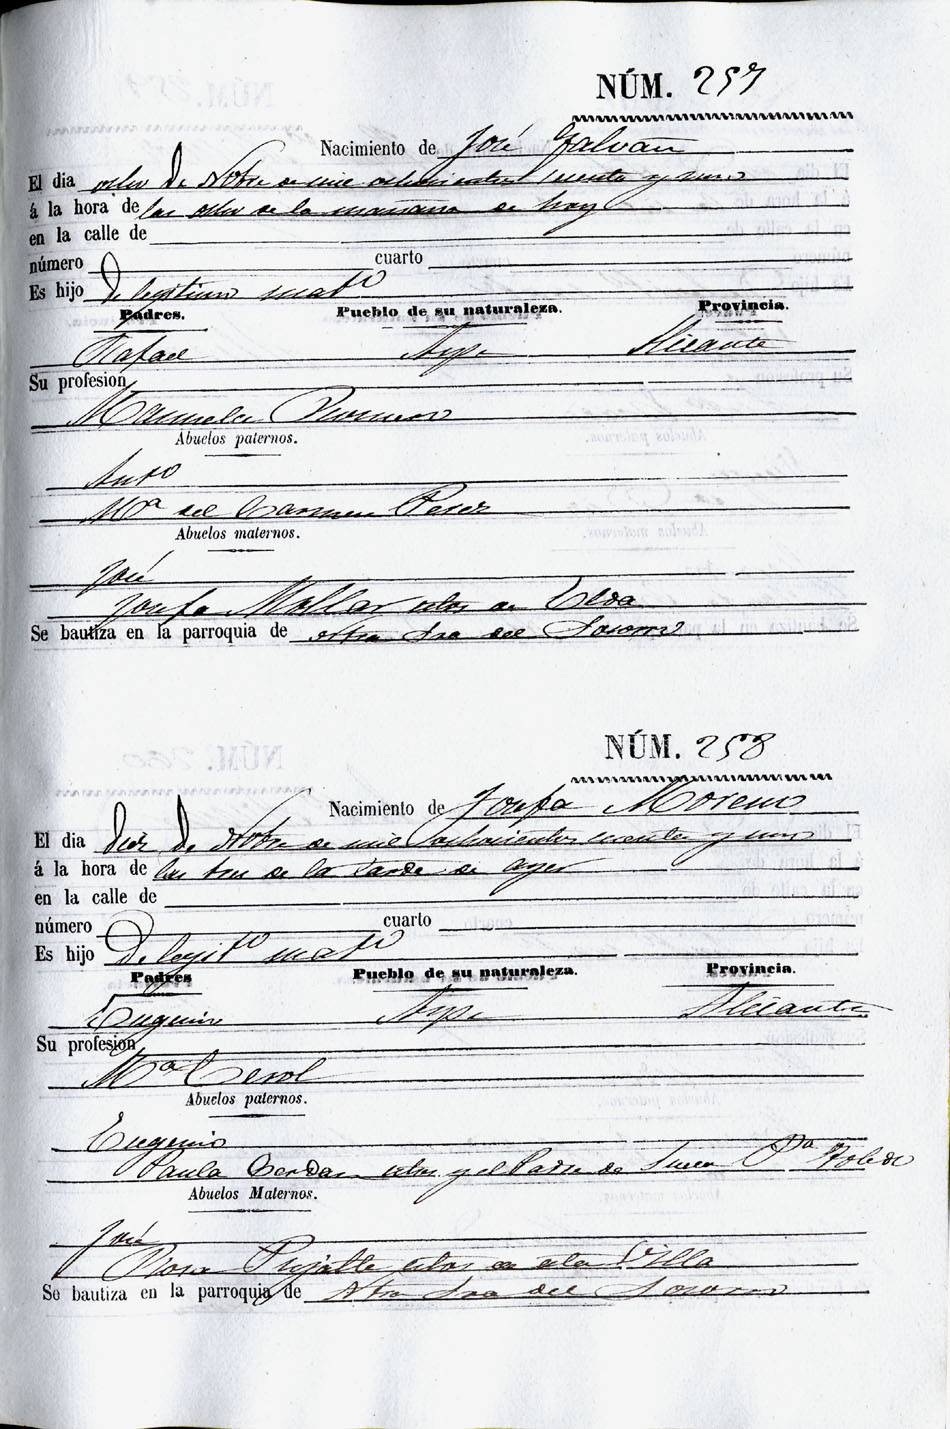 NÚM. 257
Nacimiento de José Galvan
El dia ocho de Nobre de mil ochocientos sesenta y uno
á la hora de las ocho de la mañana de hoy
en la calle de
número cuarto
Es hijo de legitimo mato
Padres. Pueblo de su naturaleza. Provincia.
Rafael Aspe Alicante
Su profesion
Manuela Romero
Abuelos paternos.
Anto
Mª del Carmen Perez
Abuelos maternos.
José
Josefa Mollar estos de Elda
Se bautiza en la parroquia de Ntra Sra del Socorro
NÚM. 258
Nacimiento de Josefa Moreno
El dia diez de Nobre de mil ochocientos sesenta y uno
á la hora de las tres de la tarde de ayer
en la calle de
número cuarto
Es hijo de legito mato
Padres Pueblo de su naturaleza. Provincia.
Eugenio Aspe Alicante
Su profesion
Mª Cerol
Abuelos paternos.
Eugenio
Paula Cerdan estos y el Padre de Pa Toledo
Abuelos Maternos.
José
Rosa Pujalte estos de esta Villa
Se bautiza en la parroquia de Ntra Sra del Socorro